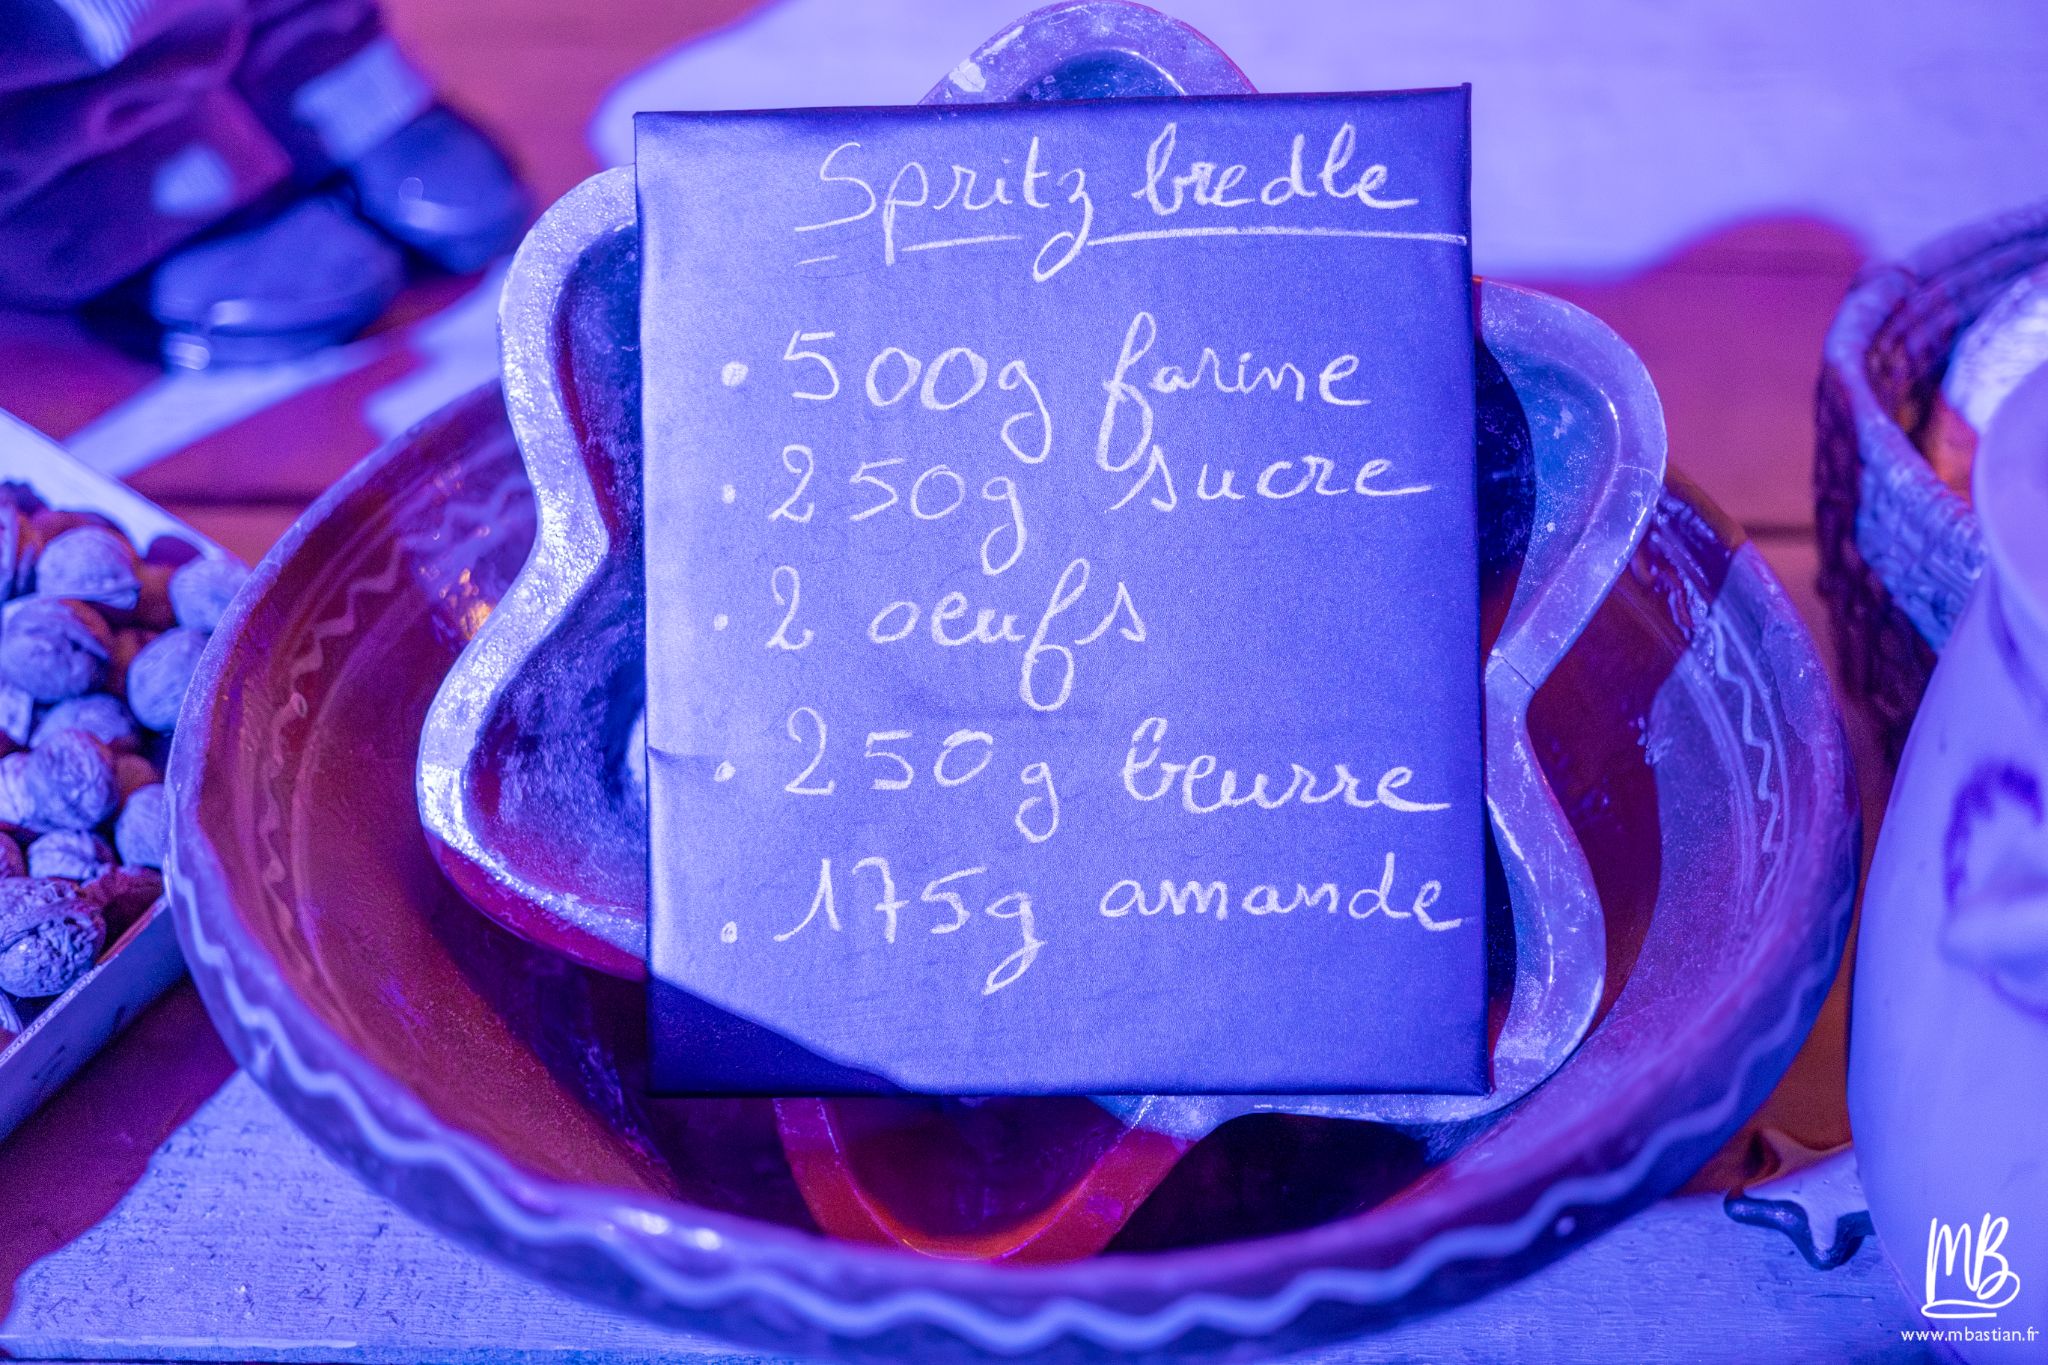 Spritz bredle
• 500g farine
• 250g sucre
• 2 oeufs
• 250g beurre
• 175g amande
MB
www.mbastian.fr